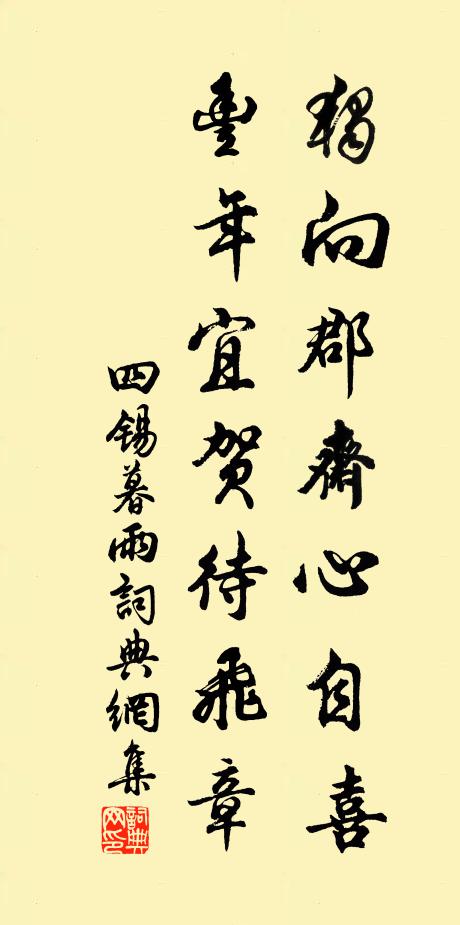 獨向郡齋心自喜
豐年宜賀待飛章
四錫暮雨詞典網集
詞典网印